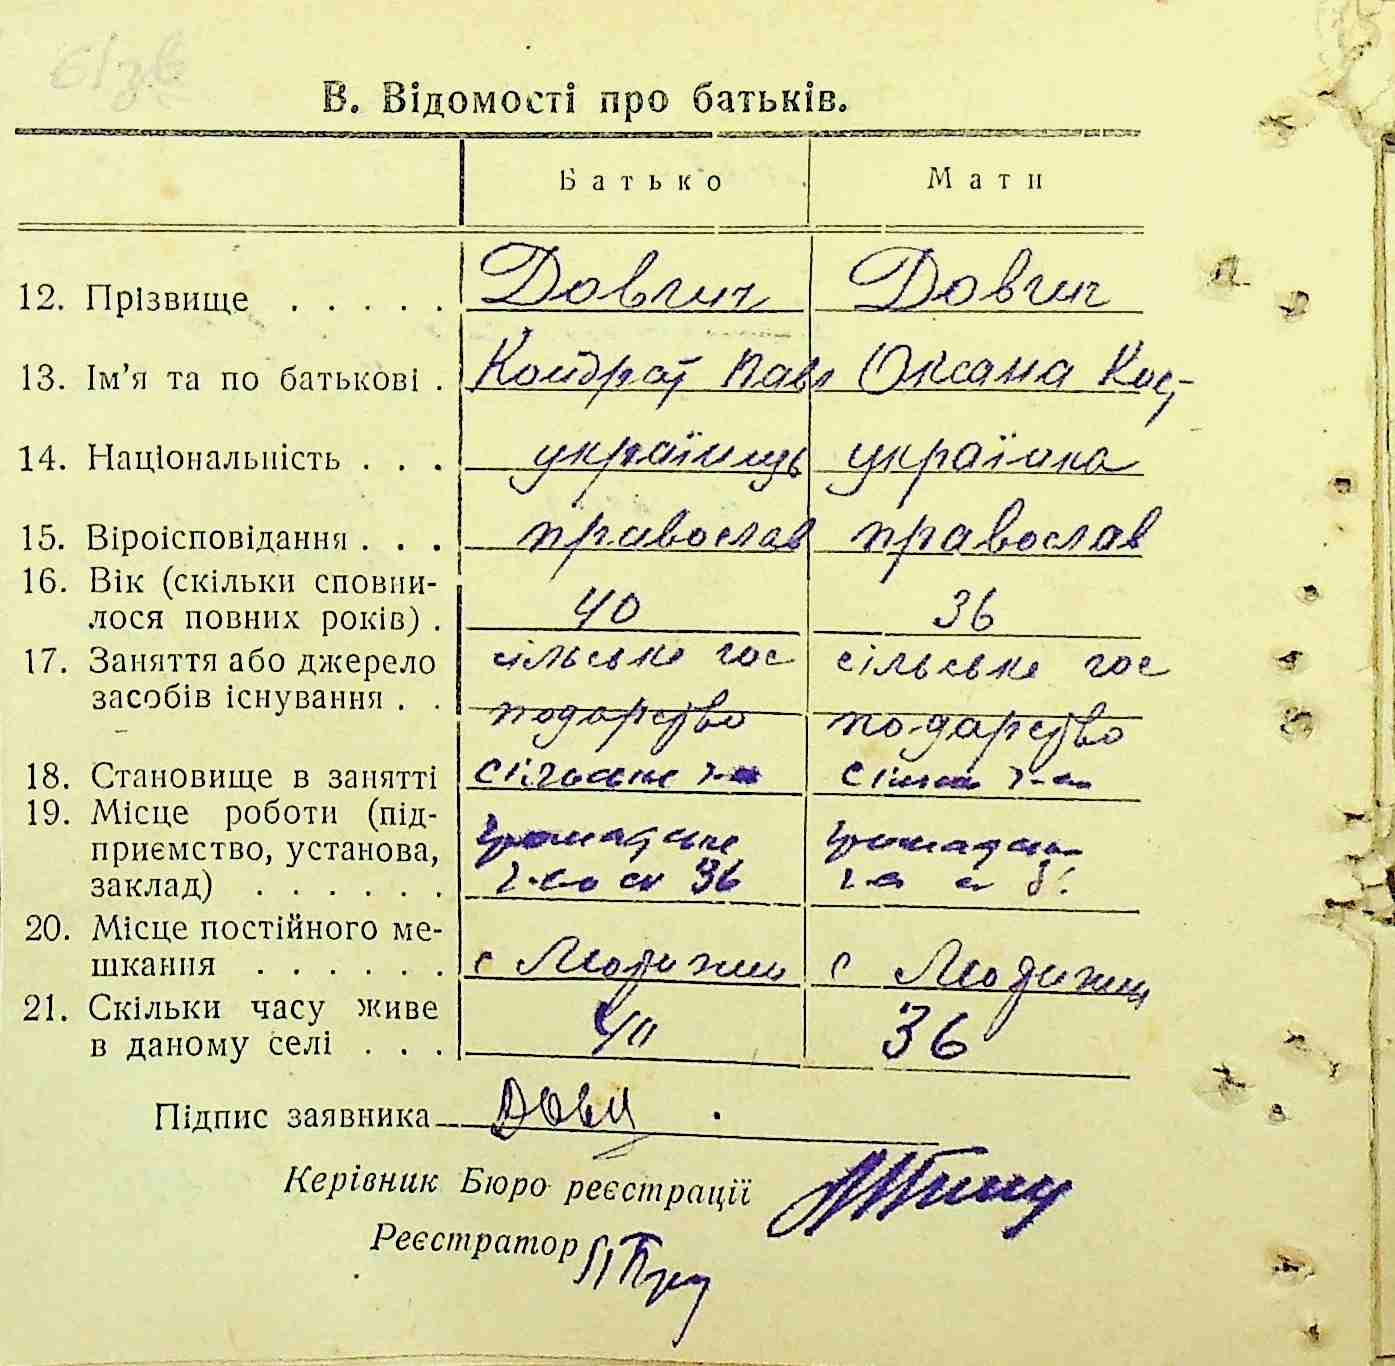 61зв
В. Відомості про батьків.
Батько Мати
12. Прізвище . . . . . Довгич Довгич
13. Ім’я та по батькові . Кондрат Павл Оксана Кост-
14. Національність . . . українець українка
15. Віроісповідання . . . православ православ
16. Вік (скільки сповни-
лося повних років) . 40 36
17. Заняття або джерело сільське гос сільське гос
засобів існування . . подарство подарство
18. Становище в занятті сільське г-во
19. Місце роботи (під-
приємство, установа, громадське
заклад) . . . . . . г-во 36
20. Місце постійного ме-
шкання . . . . . . с с
21. Скільки часу живе
в даному селі . . . 40 36
Підпис заявника Довг
Керівник Бюро реєстрації
Реєстратор